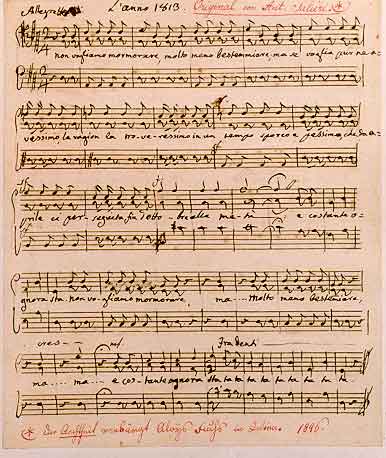 Allegretto L'anno 1813. Original von Ant. Salieri.
non vogliamo mormorare, molto meno bestemmiare, ma se voglia pur ne a-
vessimo la ragion la troveressimo in un tempo sporco e pessimo, che da a-
prile ci perseguita fin'otto- bre alla mati e costante o-
gnora sta. non vogliamo mormorare, ma molto meno bestemiare,
cres
Fra denti
ma .... ma .... e costante ognora sta ta ta ta ta ta ta ta ta.
Aloys Fuchs in 1846.